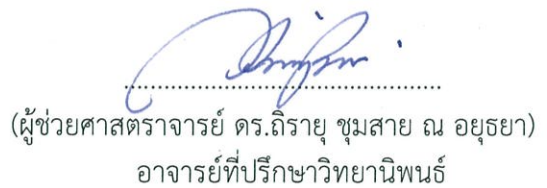 (ผู้ช่วยศาสตราจารย์ ดร.ถิรายุ ชุมสาย ณ อยุธยา)
อาจารย์ที่ปรึกษาวิทยานิพนธ์